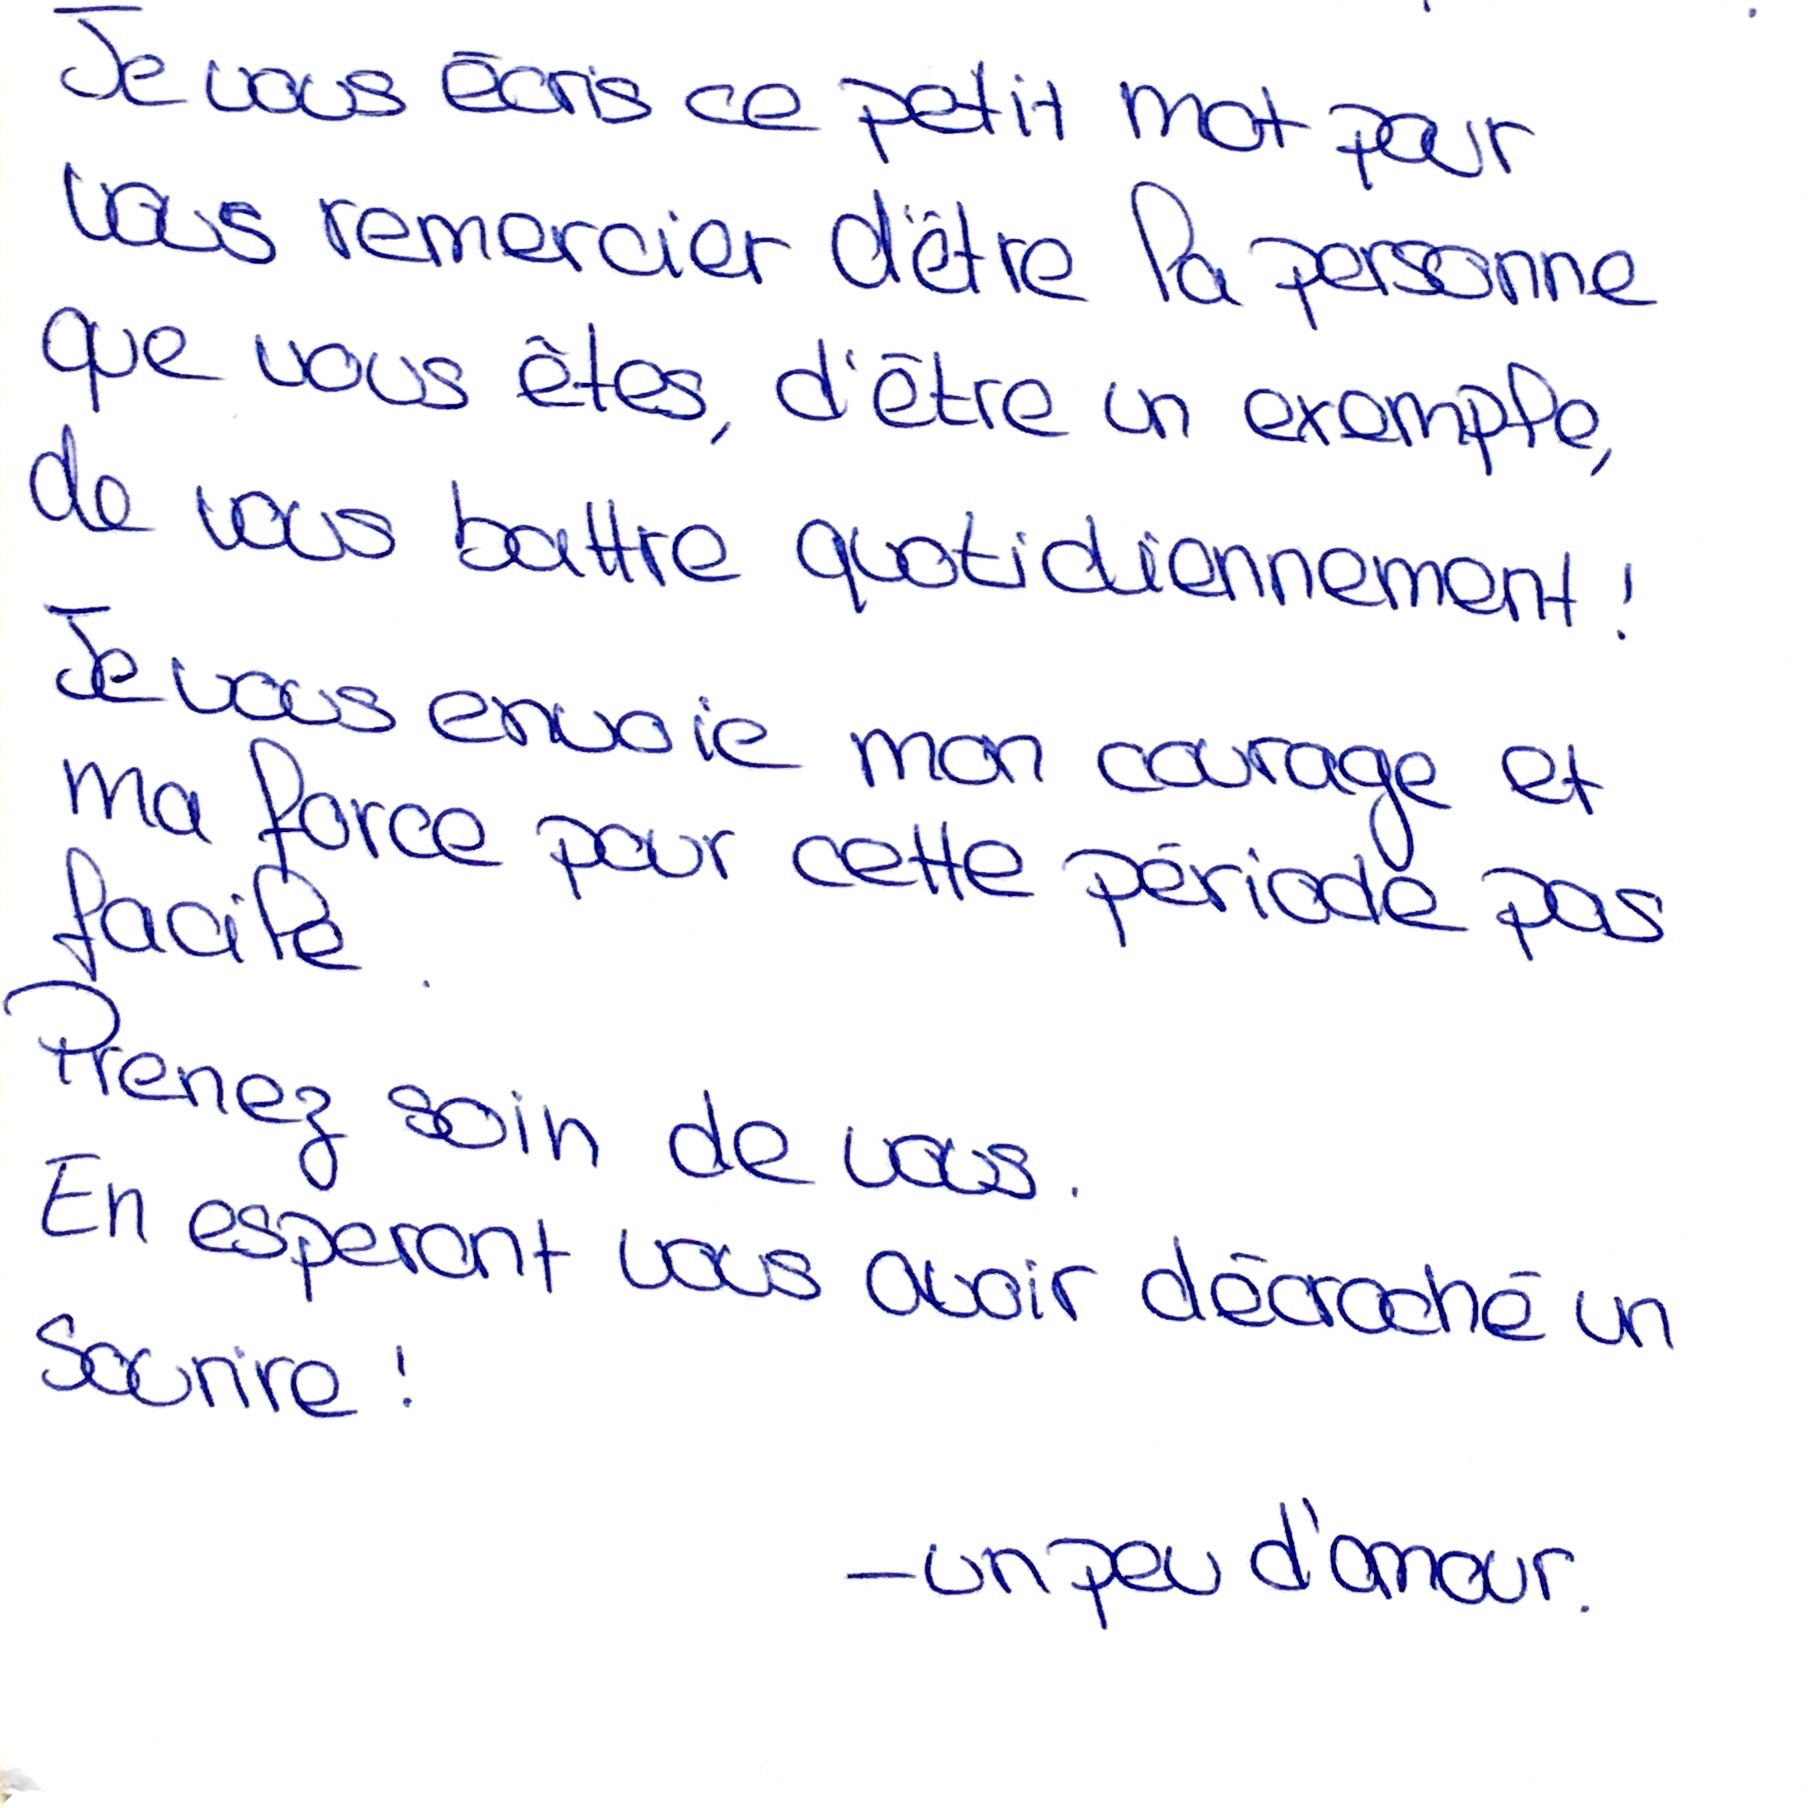 Je vous écris ce petit mot pour
vous remercier d'être la personne
que vous êtes, d'être un exemple,
de vous battre quotidiennement !
Je vous envoie mon courage et
ma force pour cette période pas
facile.
Prenez soin de vous.
En esperant vous avoir décroché un
sourire !
-un peu d'amour.